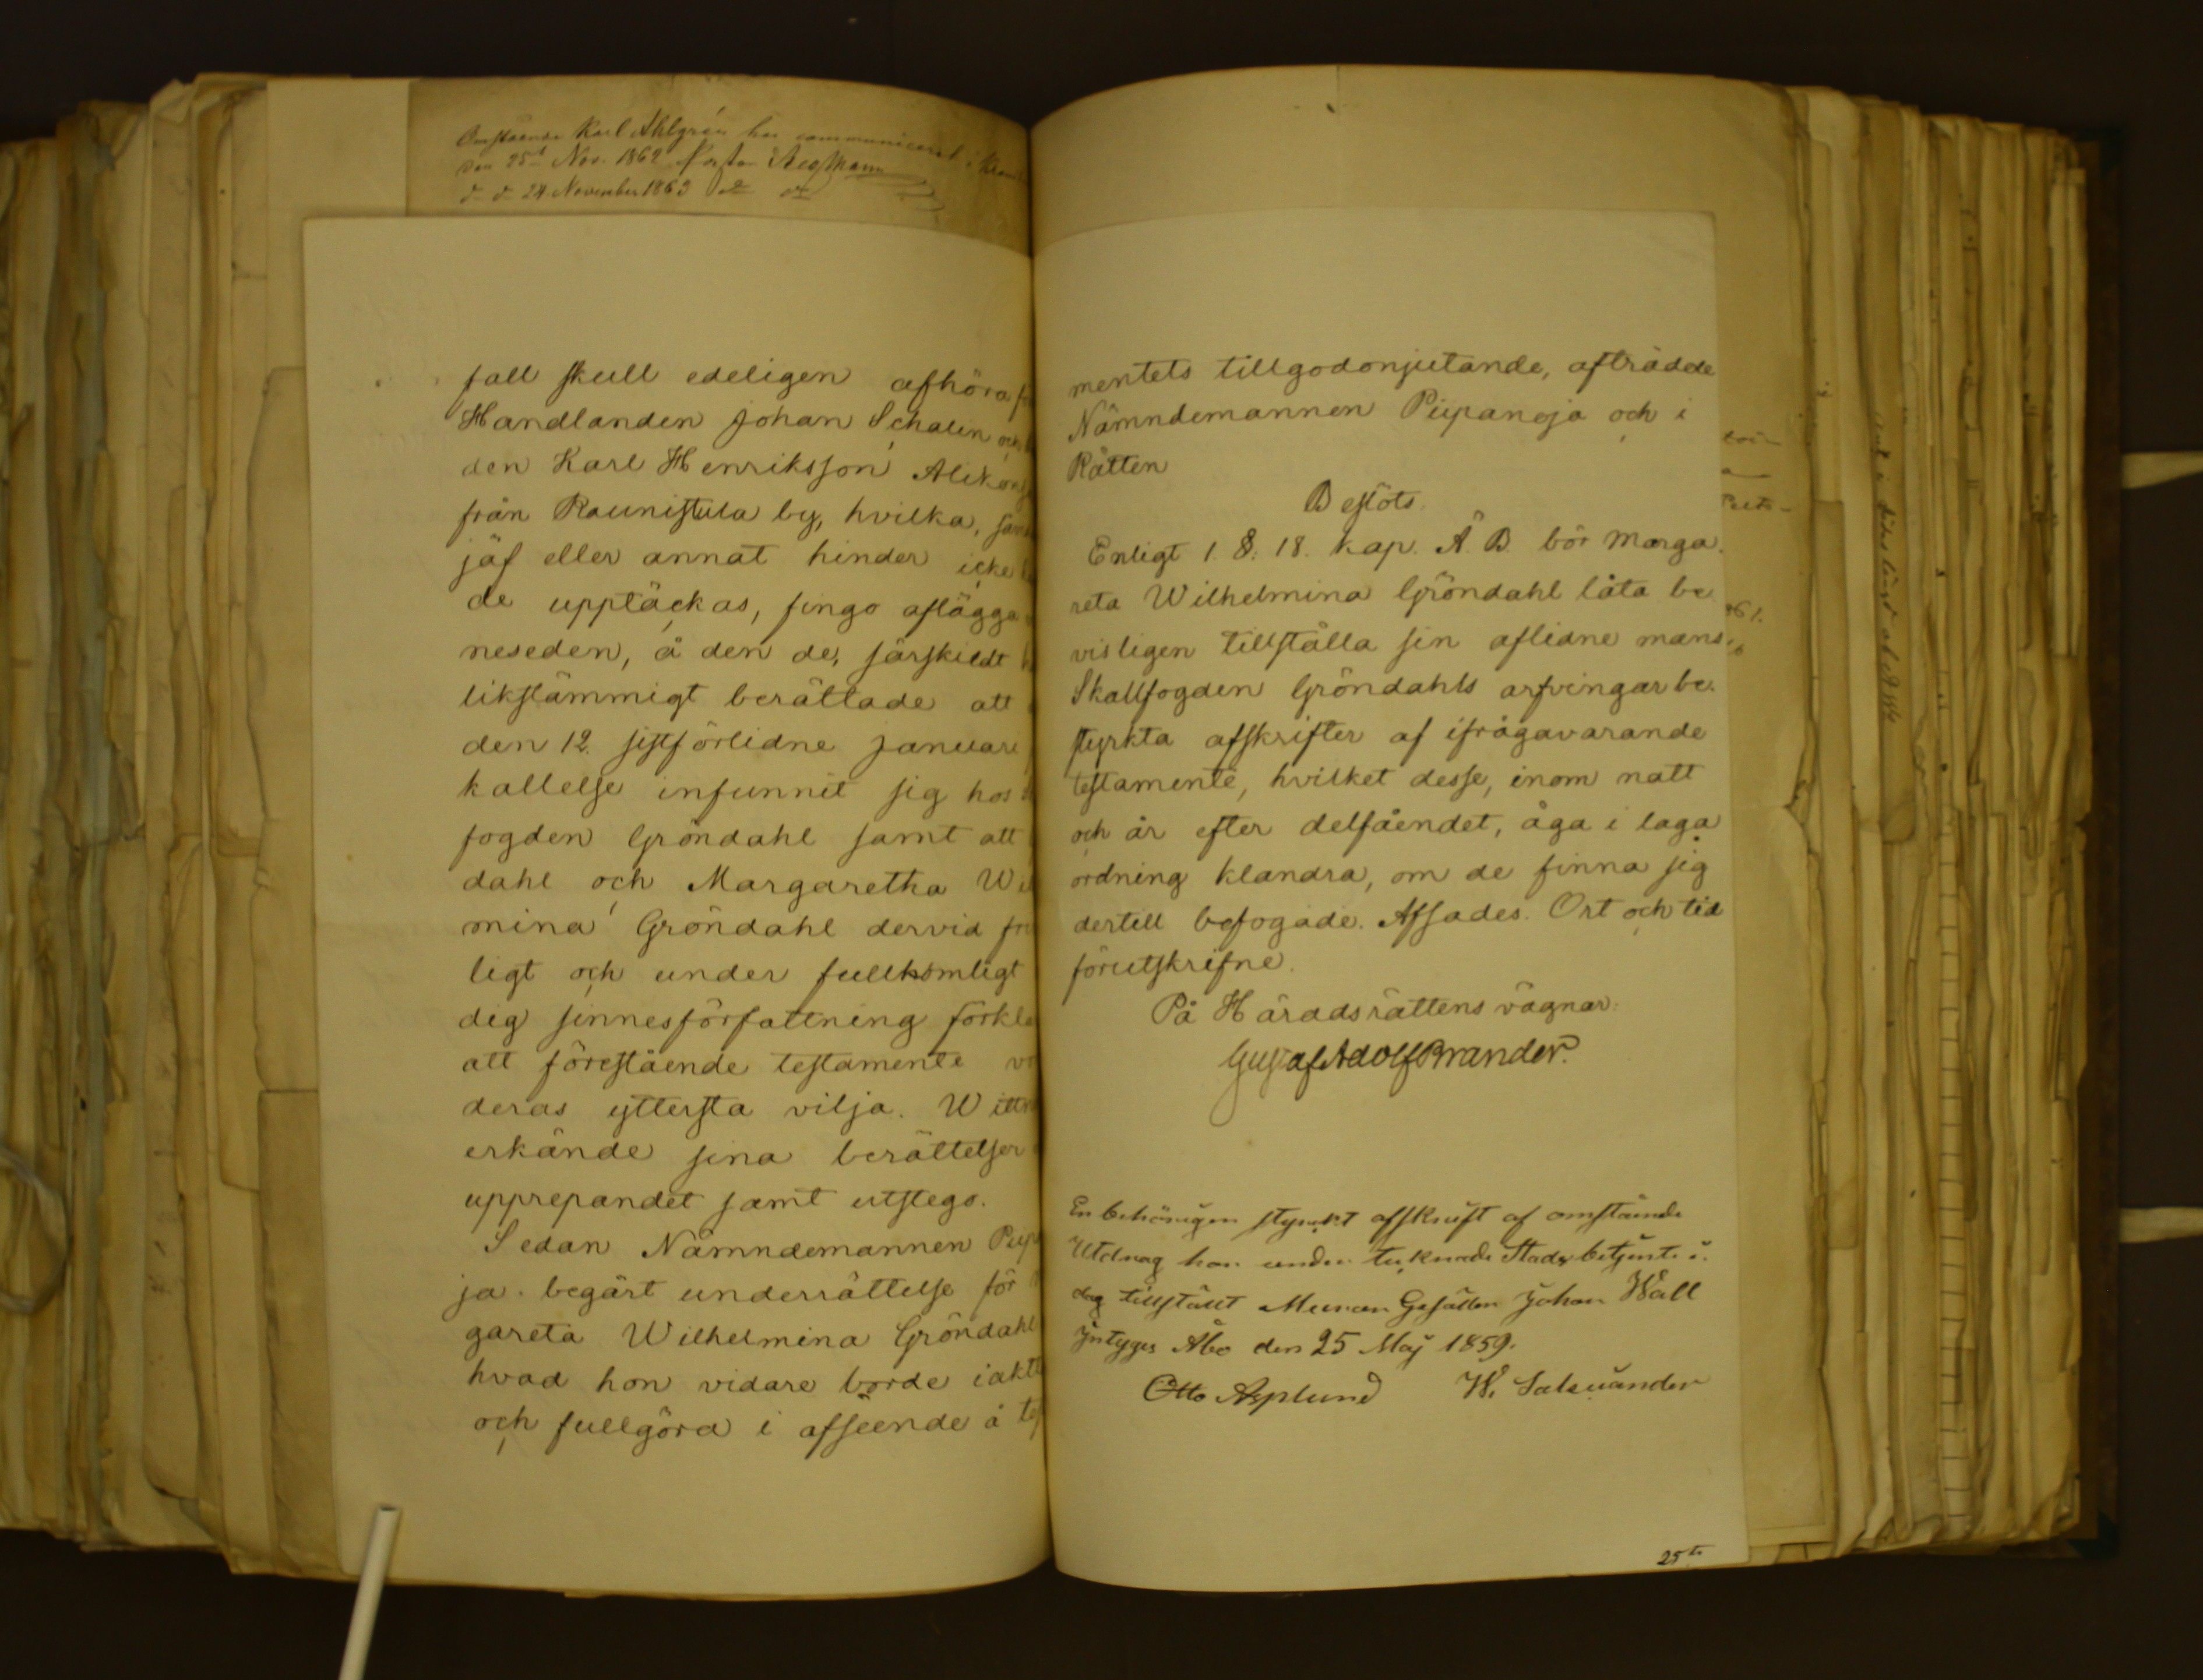 Omstående Karl Ahlgrén har communicerat i
den 25t Nov. 1862
d d 24 November 1863
fall skull edeligen afhöra
Handlanden Johan Schalin och
den Karl Henriksson
från Raunistula by, hvilka,
jäf eller annat hinder icke
de upptäckas, fingo aflägga
neseden, å den de, särskildt
likstämmigt berättade att
den 12. sistförlidne Januari
kallelse infunnit sig hos
fogden Gröndahl samt att
dahl och Margaretha Wil
mina Gröndahl dervid fri
ligt och under fullkomligt
dig sinnesförfattning förkla
att förestående testamente
deras yttersta vilja. Witt
erkände sina berättelser
upprepandet samt utstego.
Sedan Nämndemannen Piip
ja begärt underrättelse för
gareta Wilhelmina Gröndahl
hvad hon vidare borde iakt
och fullgöra i afseende å te
mentets tillgodonjutande, afträdde
Nämndemannen Piipanoja och i
Rätten
Beslöts.
Enligt 1. §. 18. Kap. Ä. B. bör Marga
reta Wilhelmina Gröndahl låta be
visligen tillställa sin aflidne mans
Skallfogden Gröndahls arfvingar be
styrkta afskrifter af ifrågavarande
testamente, hvilket desse, inom natt
och år efter delfåendet, äga i laga
ordning klandra, om de finna sig
dertill befogade. Afsades. Ort och tid
förutskrifne.
På Häradsrättens vägnar:
Gustaf Adolf Brander.
En behörigen styrckt afskrift af omstående
Utdrag har under tecknade Stads betjente i
dag tillställt Murare Gesällen Johan Wall
Intyges Åbo den 25 Maj 1859.
Otto Asplund W.
25te